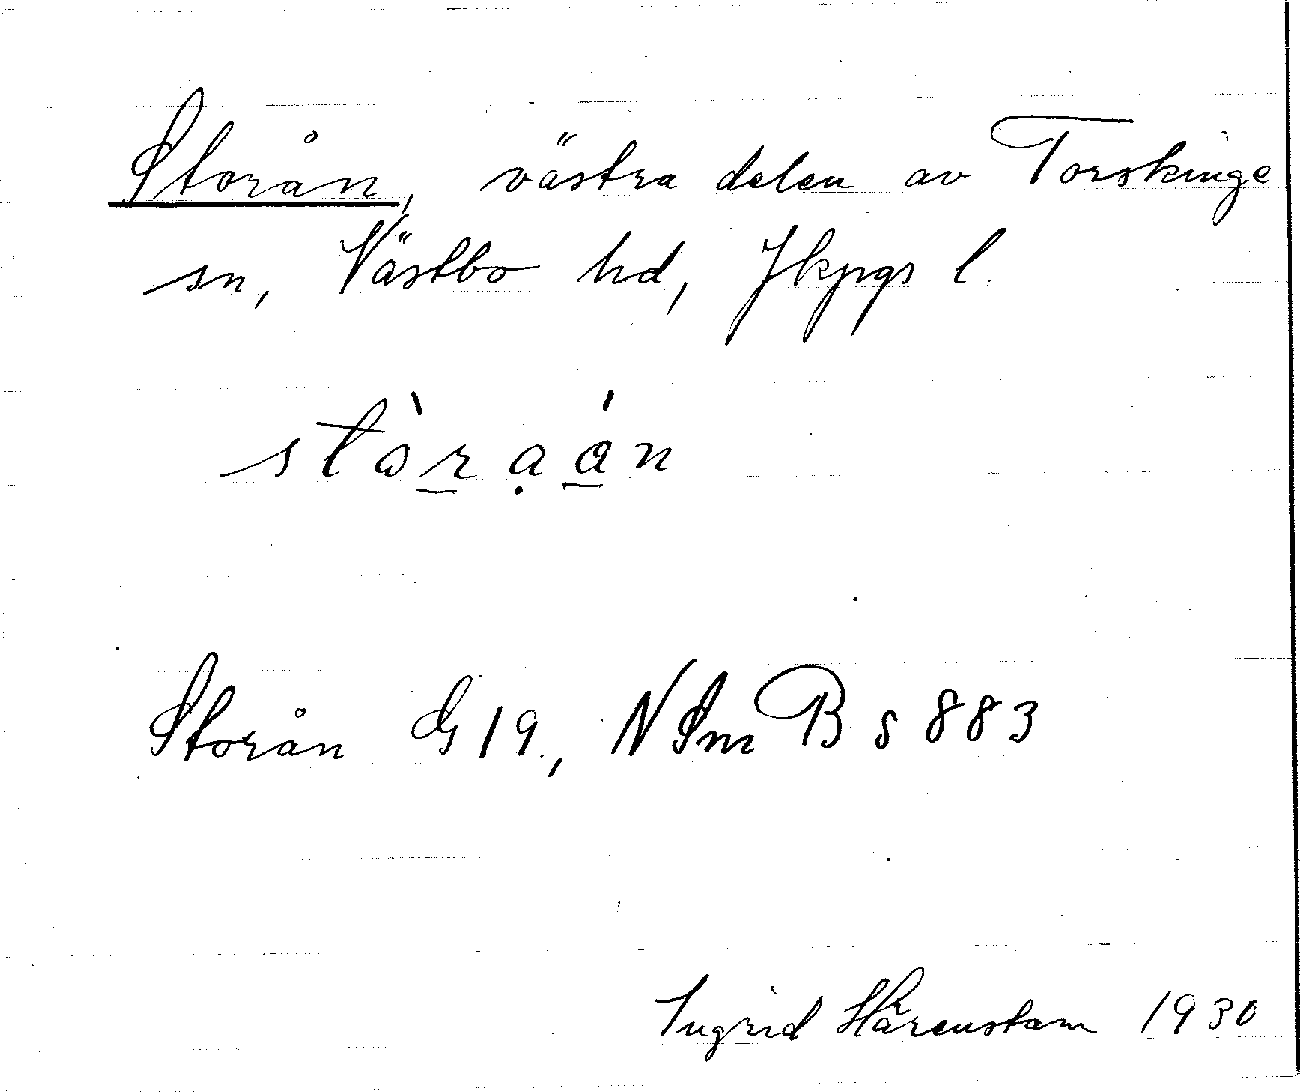 Storån, västra delen av Torskinge
sn, Västbo hd, Jkpgs l.
stòraán
Storån G 19, NSmB s 883
Ingrid Härenstam 1930